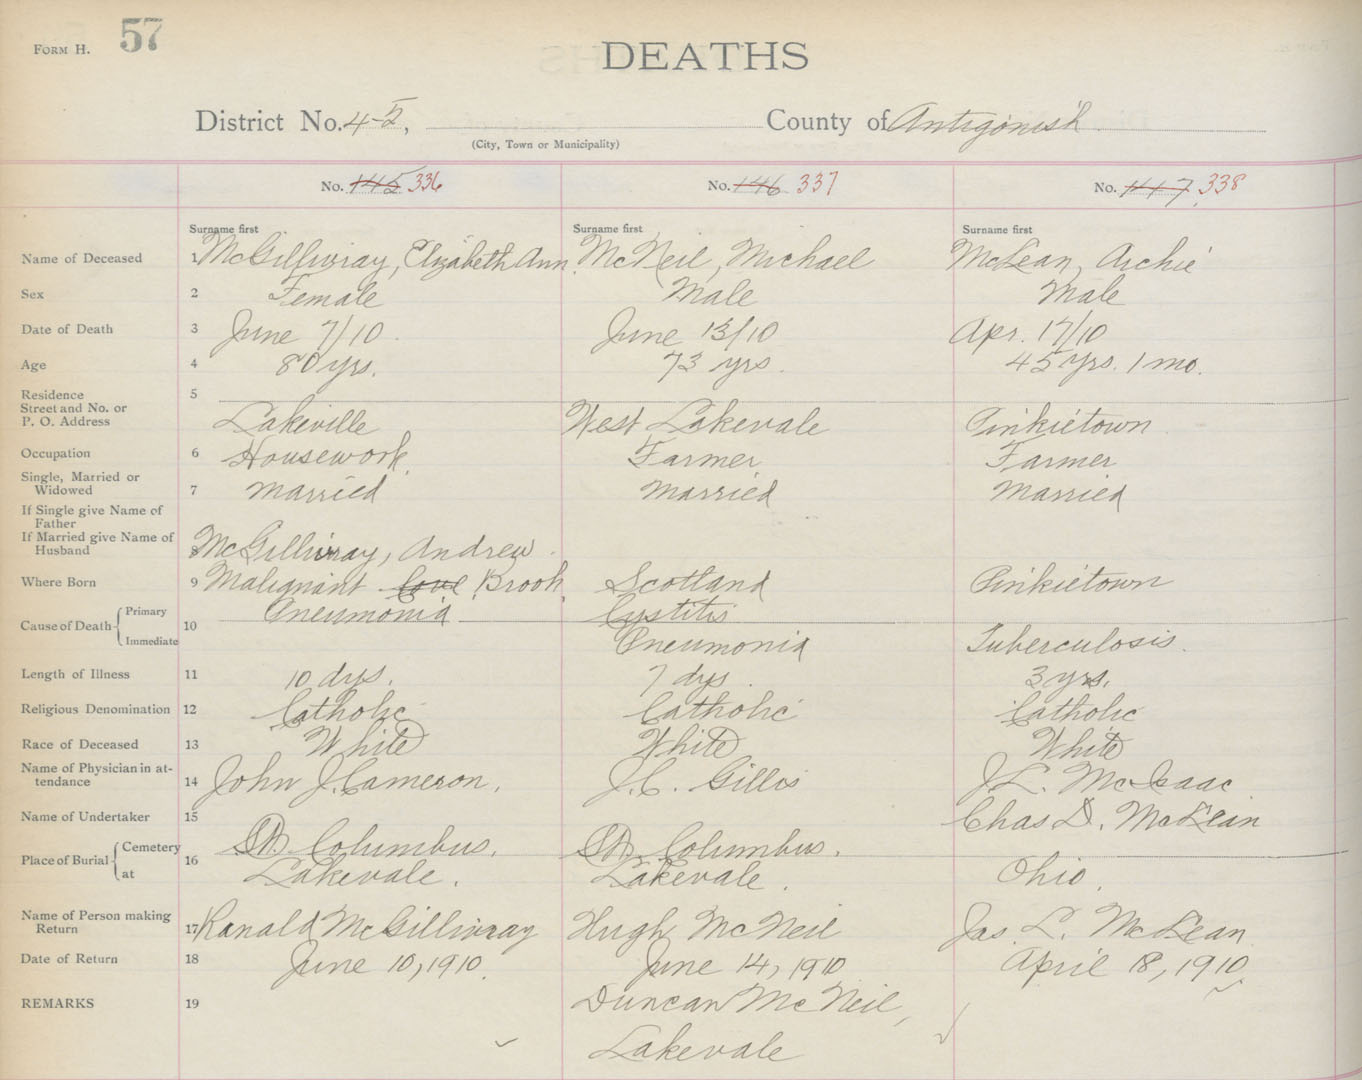 FORM H. 57
DEATHS
District No. 4-5, County of Antigonish
(City, Town or Municipality)
No. 145 336 No. 146 337 No. 147 338
Surname first Surname first Surname first
Name of Deceased 1 McGillivray, Elizabeth Ann McNeil, Michael McLean, Archie
Sex 2 Female Male Male
Date of Death 3 June 7/10 June 13/10 Apr. 17/10
Age 4 80 yrs. 73 yrs. 45 yrs. 1 mo.
Residence 5
Street and No. or
P. O. Address Lakeville West Lakevale Pinkietown
Occupation 6 Housework Farmer Farmer
Single, Married or
Widowed 7 Married Married Married
If Single give Name of
Father
If Married give Name of
Husband 8 McGillivray, Andrew
Where Born 9 Malignant Cove Brook Scotland Pinkietown
Cause of Death Primary 10 Pneumonia Cystitis
Immediate Pneumonia Tuberculosis.
Length of Illness 11 10 dys. 7 dys. 3 yrs.
Religious Denomination 12 Catholic Catholic Catholic
Race of Deceased 13 White White White
Name of Physician in at-
tendance 14 John J. Cameron, J. C. Gillis J. L. McIsaac
Name of Undertaker 15 Chas D. McLean
Place of Burial Cemetery 16 St. Columbus. St. Columbus.
at Lakevale. Lakevale. Ohio.
Name of Person making
Return 17 Ranald McGillivray Hugh McNeil Jas. L. McLean
Date of Return 18 June 10, 1910. June 14, 1910 April 18, 1910
REMARKS 19 Duncan McNeil,
Lakevale